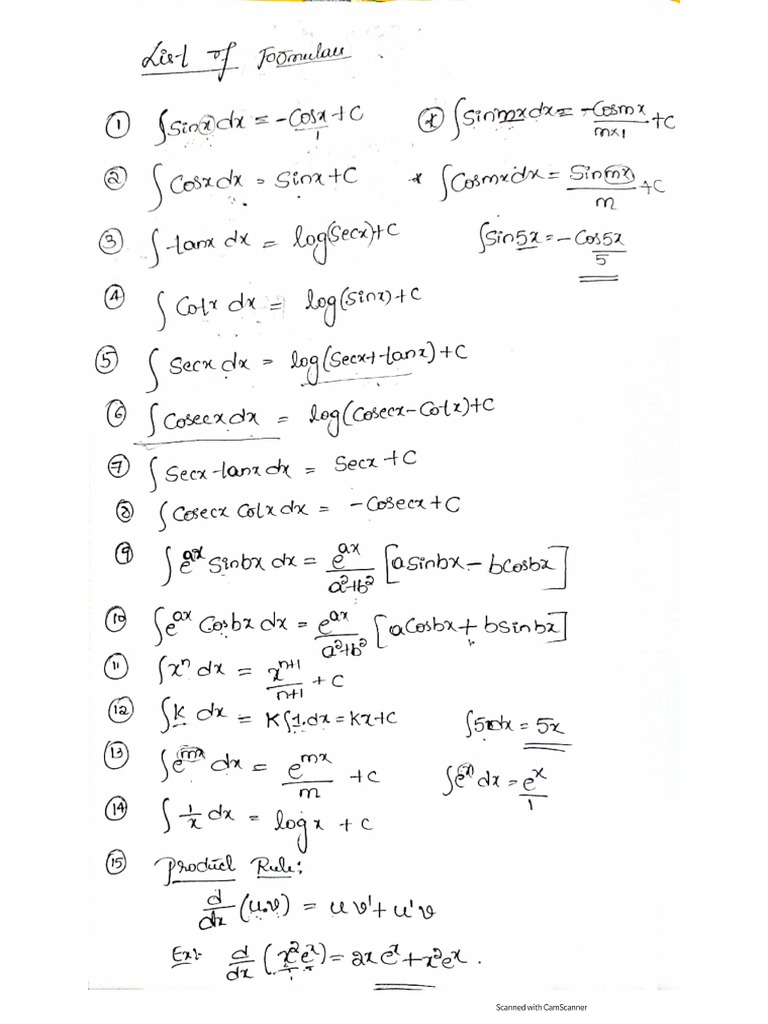 List of Formulas
① ∫Sinx dx = -Cosx/1 + C   * ∫Sinmx dx = -Cosmx/m×1 + C
② ∫Cosx dx = Sinx + C   * ∫Cosmx dx = Sinmx/m + C
③ ∫tanx dx = log(Secx) + C   ∫Sin5x = -Cos5x/5
④ ∫Cotx dx = log(Sinx) + C
⑤ ∫Secx dx = log(Secx + tanx) + C
⑥ ∫Cosecx dx = log(Cosecx - Cotx) + C
⑦ ∫Secx tanx dx = Secx + C
⑧ ∫Cosecx Cotx dx = -Cosecx + C
⑨ ∫e^ax Sinbx dx = e^ax/a²+b² [aSinbx - bCosbx]
⑩ ∫e^ax Cosbx dx = e^ax/a²+b² [aCosbx + bSinbx]
⑪ ∫xⁿ dx = x^n+1/n+1 + C
⑫ ∫K dx = K∫1.dx = Kx + C   ∫5 dx = 5x
⑬ ∫e^mx dx = e^mx/m + C   ∫e^x dx = e^x/1
⑭ ∫1/x dx = logx + C
⑮ Product Rule:
d/dx (u.v) = uv' + u'v
Ex:- d/dx (x²e^x) = 2xe^x + x²e^x.
Scanned with CamScanner